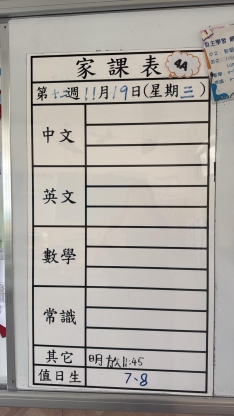 家課表 4A
第十二週11月19日(星期三)
中文
英文
數學
常識
其它 明放11:45
值日生 7、8
自主學習